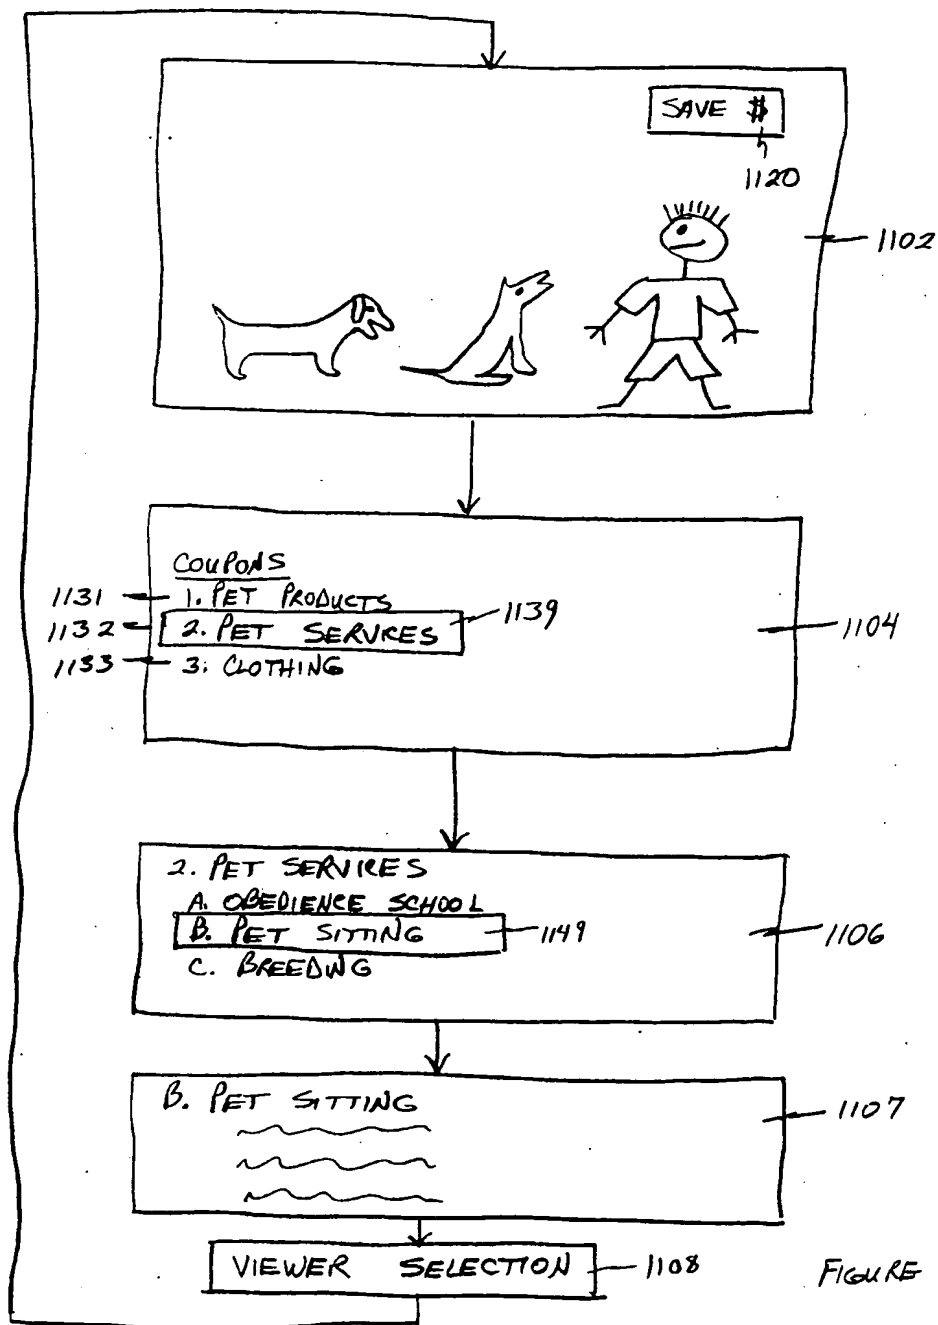 SAVE $
1120
1102
COUPONS
1131
1. PET PRODUCTS
1139
1132
2. PET SERVICES
1104
1133
3. CLOTHING
2. PET SERVICES
A. OBEDIENCE SCHOOL
B. PET SITTING
1149
1106
C. BREEDING
B. PET SITTING
1107
VIEWER SELECTION
1108
FIGURE